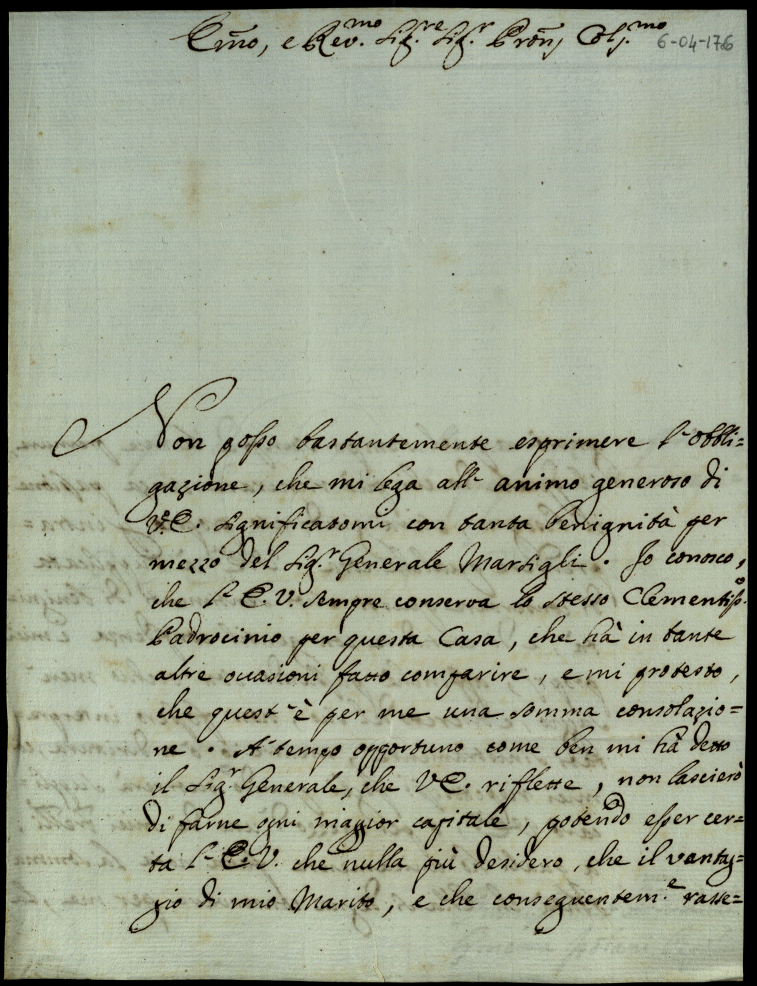 Em̃o, e Rev.mo Sig.re Sig.r Pron̄ Col.mo
6-04-1726
Non posso bastantemente esprimere l'obbli=
gazione, che mi lega all'animo generoso di
V.E. significatomi con tanta benignità per
mezzo del Sig.r Generale Marsigli. Io conosco,
che l'E.V. sempre conserva lo stesso Clementiss.o
Padrocinio per questa Casa, che hà in tante
altre occasioni fatto comparire, e mi protesto,
che quest'è per me una somma consolazio=
ne. A tempo opportuno come ben mi hà detto
il Sig.r Generale, che V.E. riflette, non lascierò
di farne ogni maggior capitale, potendo esser cer=
ta l'E.V. che nulla più desidero, che il vantag=
gio di mio Marito, e che conseguentem.e rasse=